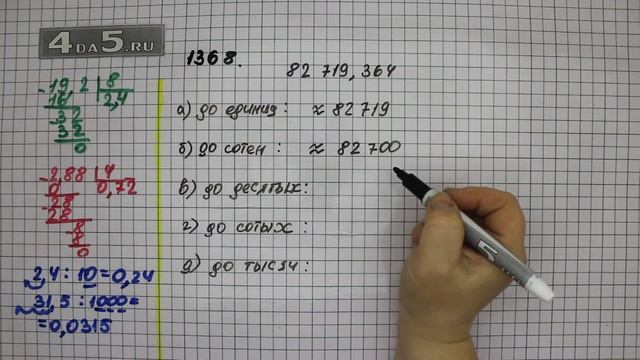 4DA5.RU
1368.
82 719,364
а) до единиц: ≈ 82 719
б) до сотен: ≈ 82 700
в) до десятых:
г) до сотых:
д) до тысяч:
-19,2 | 8
16 | 2,4
-32
32
0
-2,88 | 4
0 | 0,72
-28
28
-8
8
0
2,4 : 10 = 0,24
31,5 : 1000 =
= 0,0315